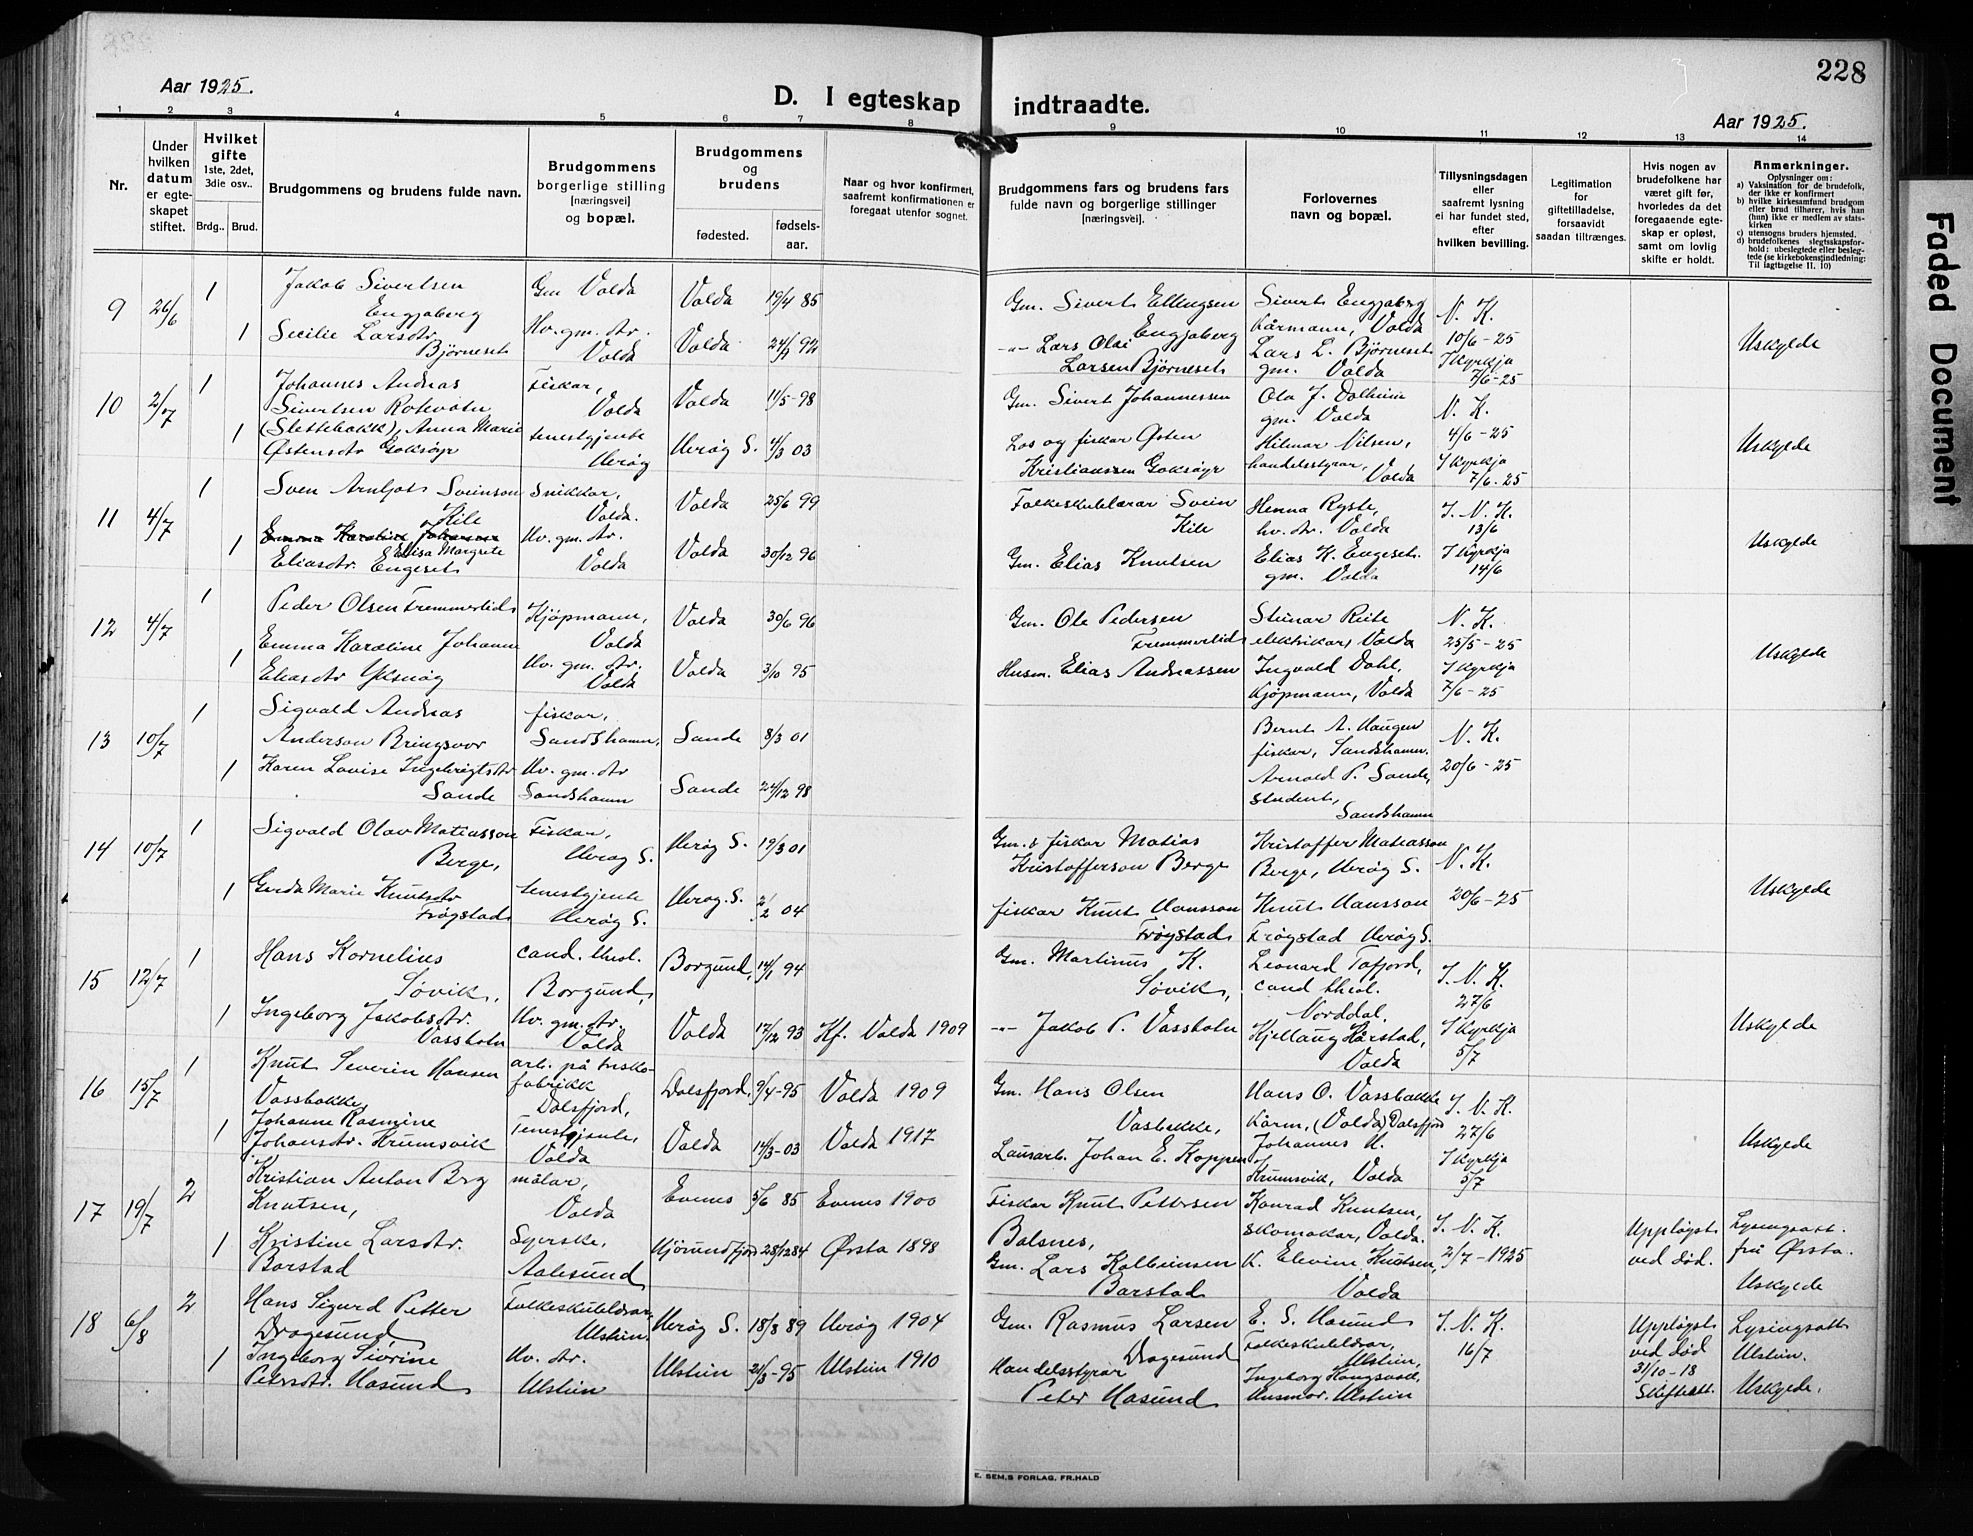 228
Aar 1925.
D. I egteskap indtraadte.
Aar 1925.
1 2 3 4 5 6 7 8 9 10 11 12 13 14
Nr.
Under hvilken datum er egte-skapet stiftet.
Hvilket gifte
1ste, 2det, 3die osv..
Brdg.. Brud.
Brudgommens og brudens fulde navn.
Brudgommens borgerlige stilling [næringsvei] og bopæl.
Brudgommens og brudens
fødested. fødsels-aar.
Naar og hvor konfirmert, saafremt konfirmationen er foregaat utenfor sognet.
Brudgommens fars og brudens fars fulde navn og borgerlige stillinger [næringsvei].
Forlovernes navn og bopæl.
Tillysningsdagen eller saafremt lysning ei har fundet sted, efter hvilken bevilling.
Legitimation for giftetilladelse, forsaavidt saadan tiltrænges.
Hvis nogen av brudefolkene har været gift før, hvorledes da det foregaaende egte-skap er opløst, samt om lovlig skifte er holdt.
Anmerkninger.
Oplysninger om:
a) Vaksination for de brudefolk, der ikke er konfirmert
b) hvilke kirkesamfund brudgom eller brud tilhører, hvis han (hun) ikke er medlem av stats-kirken
c) utensogns bruders hjemsted.
d) brudefolkenes slegtsskapsfor-hold: ubeslegtede eller besleg-tede (se kirkebokens indledning: Til Iagttagelse II. 10)
9 26/6 1 Jakob Sivertsen Gm Volda Volda 19/4 85 Gm. Sivert Ellingsen Sivert Engjaberg N. K.
Engjaberg Engjaberg kårmann, Volda 10/6-25
1 Secilie Larsdtr. Hv. gm. dtr. Volda 92 -"- Lars Olai Lars L. Bjørneset I kyrkja Uskylde
Bjørneset Volda Larsen Bjørneset gm. Volda 7/6-25
10 2/7 1 Johannes Andreas Fiskar, Volda 11/5-98 Gm. Sivert Johannessen Ola J. Dalheim N. K.
Sivertsen Rotevatn Volda gm. Volda 4/6-25
1 (Slettebakk), Anna Marie tenestgjente Herøy S. 4/3 03 Los og fiskar Østen Hilmar Nilsen, I kyrkja Uskylde
Østensdtr Goksøyr Herøy Kristianssen Goksøyr handelsstyrar, Volda 7/6-25
11 4/7 1 Sven Arnljot Sveinson Snikkar, Volda 25/6 99 Folkeskulelærar Svein Henna Ryste, I. N. K.
Kile Volda. Kile hv. dtr. Volda 13/6
Emma Karoline Johanne Hv. gm. dtr.
1 Elisa Margrete Volda 30/12 96 Gm. Elias Knutsen Elias K. Engeset I kyrkja Uskylde
Eliasdtr. Engeset Volda gm. Volda 14/6
12 4/7 1 Peder Olsen Fremmerlid Kjøpmann, Volda 30/6 96 Gm. Ole Pedersen Steinar Reite N. K.
Volda Fremmerlid elektrikar, Volda 25/5-25
1 Emma Karoline Johanne Hv. gm. dtr. Volda 3/10 95 Husm. Elias Andreassen Ingvald Dahl, I kyrkja Uskylde
Eliasdtr Yksnøy Volda kjøpmann, Volda 7/6-25
13 10/7 1 Sigvald Andreas fiskar, Sande 8/3 01 Bernt A. Haugen N. K.
Anderson Bringsvor Sandshamn, fiskar, Sandshamn.
1 Karen Lovise Ingebrigtsdtr Hv. gm. dtr Sande 24/12 98 Arnold P. Sande, 20/6-25
Sande Sandshamn student, Sandshamn
14 10/7 1 Sigvald Olav Matiasson Fiskar, Herøy S. 19/3 01 Gm. & fiskar Matias Kristoffer Matiasson N. K.
Berge, Herøy S. Kristofferson Berge Berge, Herøy S.
1 Gerda Marie Knutsdtr tenestgjente Herøy. S. 2/2 04 fiskar Knut Hansson Knut Hansson 20/6-25 Uskylde
Frøystad Herøy S. Frøystad Frøystad Herøy S.
15 12/7 1 Hans Kornelius cand. theol. Borgund, 14/1 94 Gm. Martinus K. Leonard Tafjord, I. N. K.
Søvik, Borgund, Søvik, cand theol. Norddal, 27/6
1 Ingeborg Jakobsdtr. Hv. gm. dtr. Volda 17/12 93 Kf. Volda 1909 -"- Jakob P. Vassbotn Kjellaug Hårstad, I kyrkja Uskylde
Vassbotn Volda Volda 5/7
16 15/7 1 Knut Severin Hansen arb. på trisko-fabrikk Dalsfjord, 9/4-95 Volda 1909 Gm. Hans Olsen Hans O. Vassbakke I. N. K.
Vassbakke, Dalsfjord, Vasbakke, kårm, (Volda) Dalsfjord 27/6
1 Johanne Rasmine Tenestgjente, Volda 14/3-03 Volda 1917 Lausarb. Johan E. Koppen Johannes H. I kyrkja Uskylde
Johansdtr. Krumsvik Volda Krumsvik, Volda 5/7
17 19/7 2 Kristian Anton Berg målar, Evenes 5/6 85 Evenes 1900 Fiskar Knut Pettersen Konrad Knutsen, I. N. K. Uppløyst Lysingsatt.
Knutsen, Volda Balsnes, skomakar, Volda. ved død. frå Ørsta.
1 Kristine Larsdtr. Syerske, Hjørundfjord 28/12 84 Ørsta 1898 Gm. Lars Kolbeinsen K. Elevine Knutsen, 2/7-1925
Barstad Aalesund Barstad Volda Uskylde
18 6/8 2 Hans Sigurd Petter Folkeskulelærar, Herøy S. 18/8 89 Herøy 1904 Gm. Rasmus Larsen E. S. Hasund I. N. K. Uppløyst Lysingsatt
Dragesund Ulstein. Dragesund Folkeskulelærar, Ulstein, 16/7 ved død Ulstein.
1 Ingeborg Siorine Hv. dtr. Ulstein 21/3-95 Ulstein 1910 Handelsstyrar Ingeborg 31/10-18
Petersdtr. Hasund Ulstein Peter Hasund Husmor. Ulstein Skifteatt. Uskylde.
E. SEM,S FORLAG, FR.HALD
Faded Document